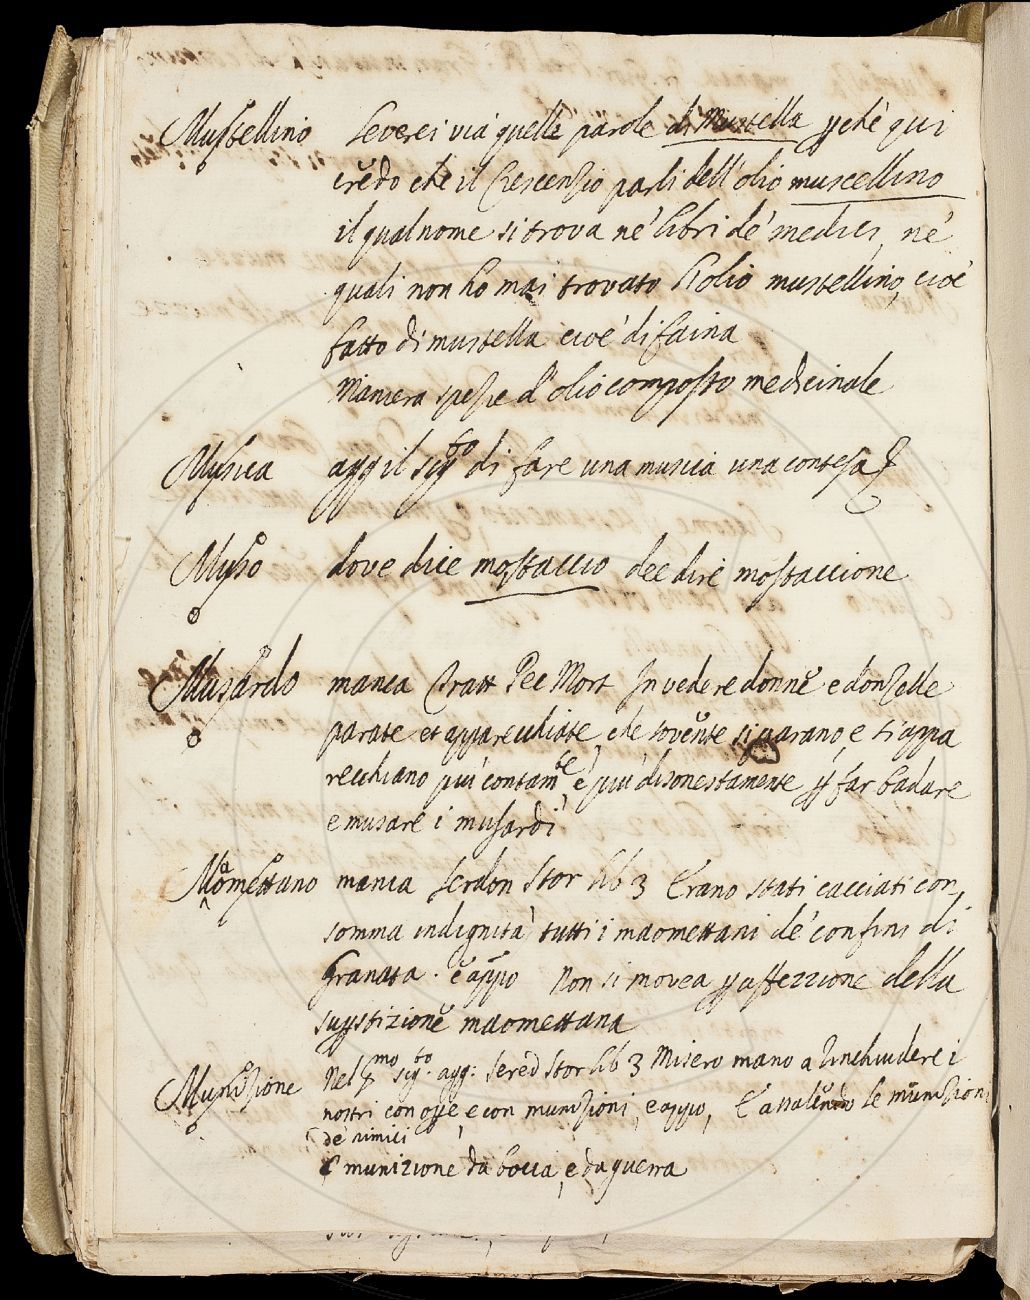 Mustellino leverei via quelle parole di Mustella pchè qui
credo che il Crescenzio parli dell'olio muscellino
il qual nome si trova ne' libri de' medici, ne'
quali non ho mai trovato l'olio mustellino, cioè
fatto di mustella cioè di faina
Maniera spezie d'olio composto medicinale
Musica agg il sigto di fare una musica una contesa
Muso dove dice mostaccio dee dire mostaccione
Musardo manca Tratt Pec Mort In vedere donne e donzelle
parate et apparecchiate, che sovente si parano, e s'appa
recchiano più contamte e più disonestamente p far badare
e musare i musardi
Maomettano manca Serdon Stor lib 3 Erano stati cacciati con
somma indignità tutti i maomettani de' confini di
Granata . e appo Non si movea p affezzione della
supstizione maomettana
Munizione Nel pmo sigto agg: Serd Stor lib 3 Misero mano a rinchiudere i
nostri con opre e con munizioni, e appo, E assalendo le munizioni
de' nimici
E munizione da bocca, e da guerra